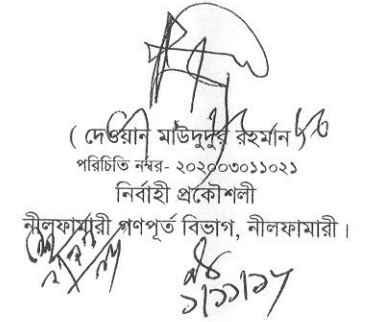 ( দেওয়ান মাউদুদুর রহমান )
পরিচিতি নম্বর- ২০২০০৩০১১০২১
নির্বাহী প্রকৌশলী
নীলফামারী গণপূর্ত বিভাগ, নীলফামারী।